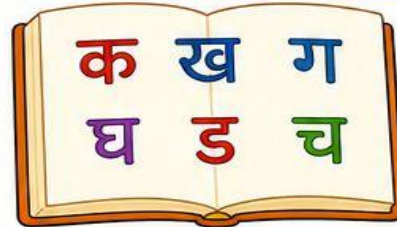 क ख ग
घ ड च